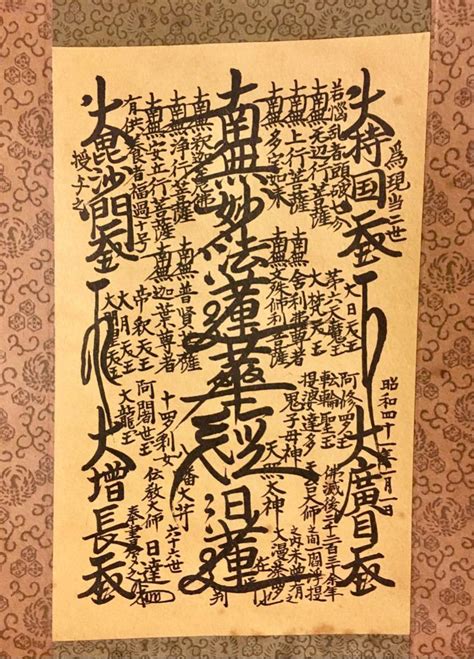 為現当二世
大持国天王
大廣目天王
若惱乱者頭破七分
南無无辺行菩薩
南無上行菩薩
南無多宝如来
南無妙法蓮華経
日蓮
在御判
南無釈迦牟尼佛
南無浄行菩薩
南無安立行菩薩
有供養者福過十号
大毘沙門天王
大増長天王
授与之
大日天王
第六天魔王
大梵天王
南無舎利弗尊者
南無文殊師利菩薩
南無普賢菩薩
南無迦葉尊者
帝釈天王
大月天王
大明星天王
阿修羅王
転輪聖王
提婆達多
鬼子母神
十羅刹女
阿闍世王
大龍王
天台大師
天照太神
八幡大菩薩
伝教大師
佛滅後二千二百三十余年
之間一閻浮提
之内未曾有之
大漫荼羅也
六十六世
日達